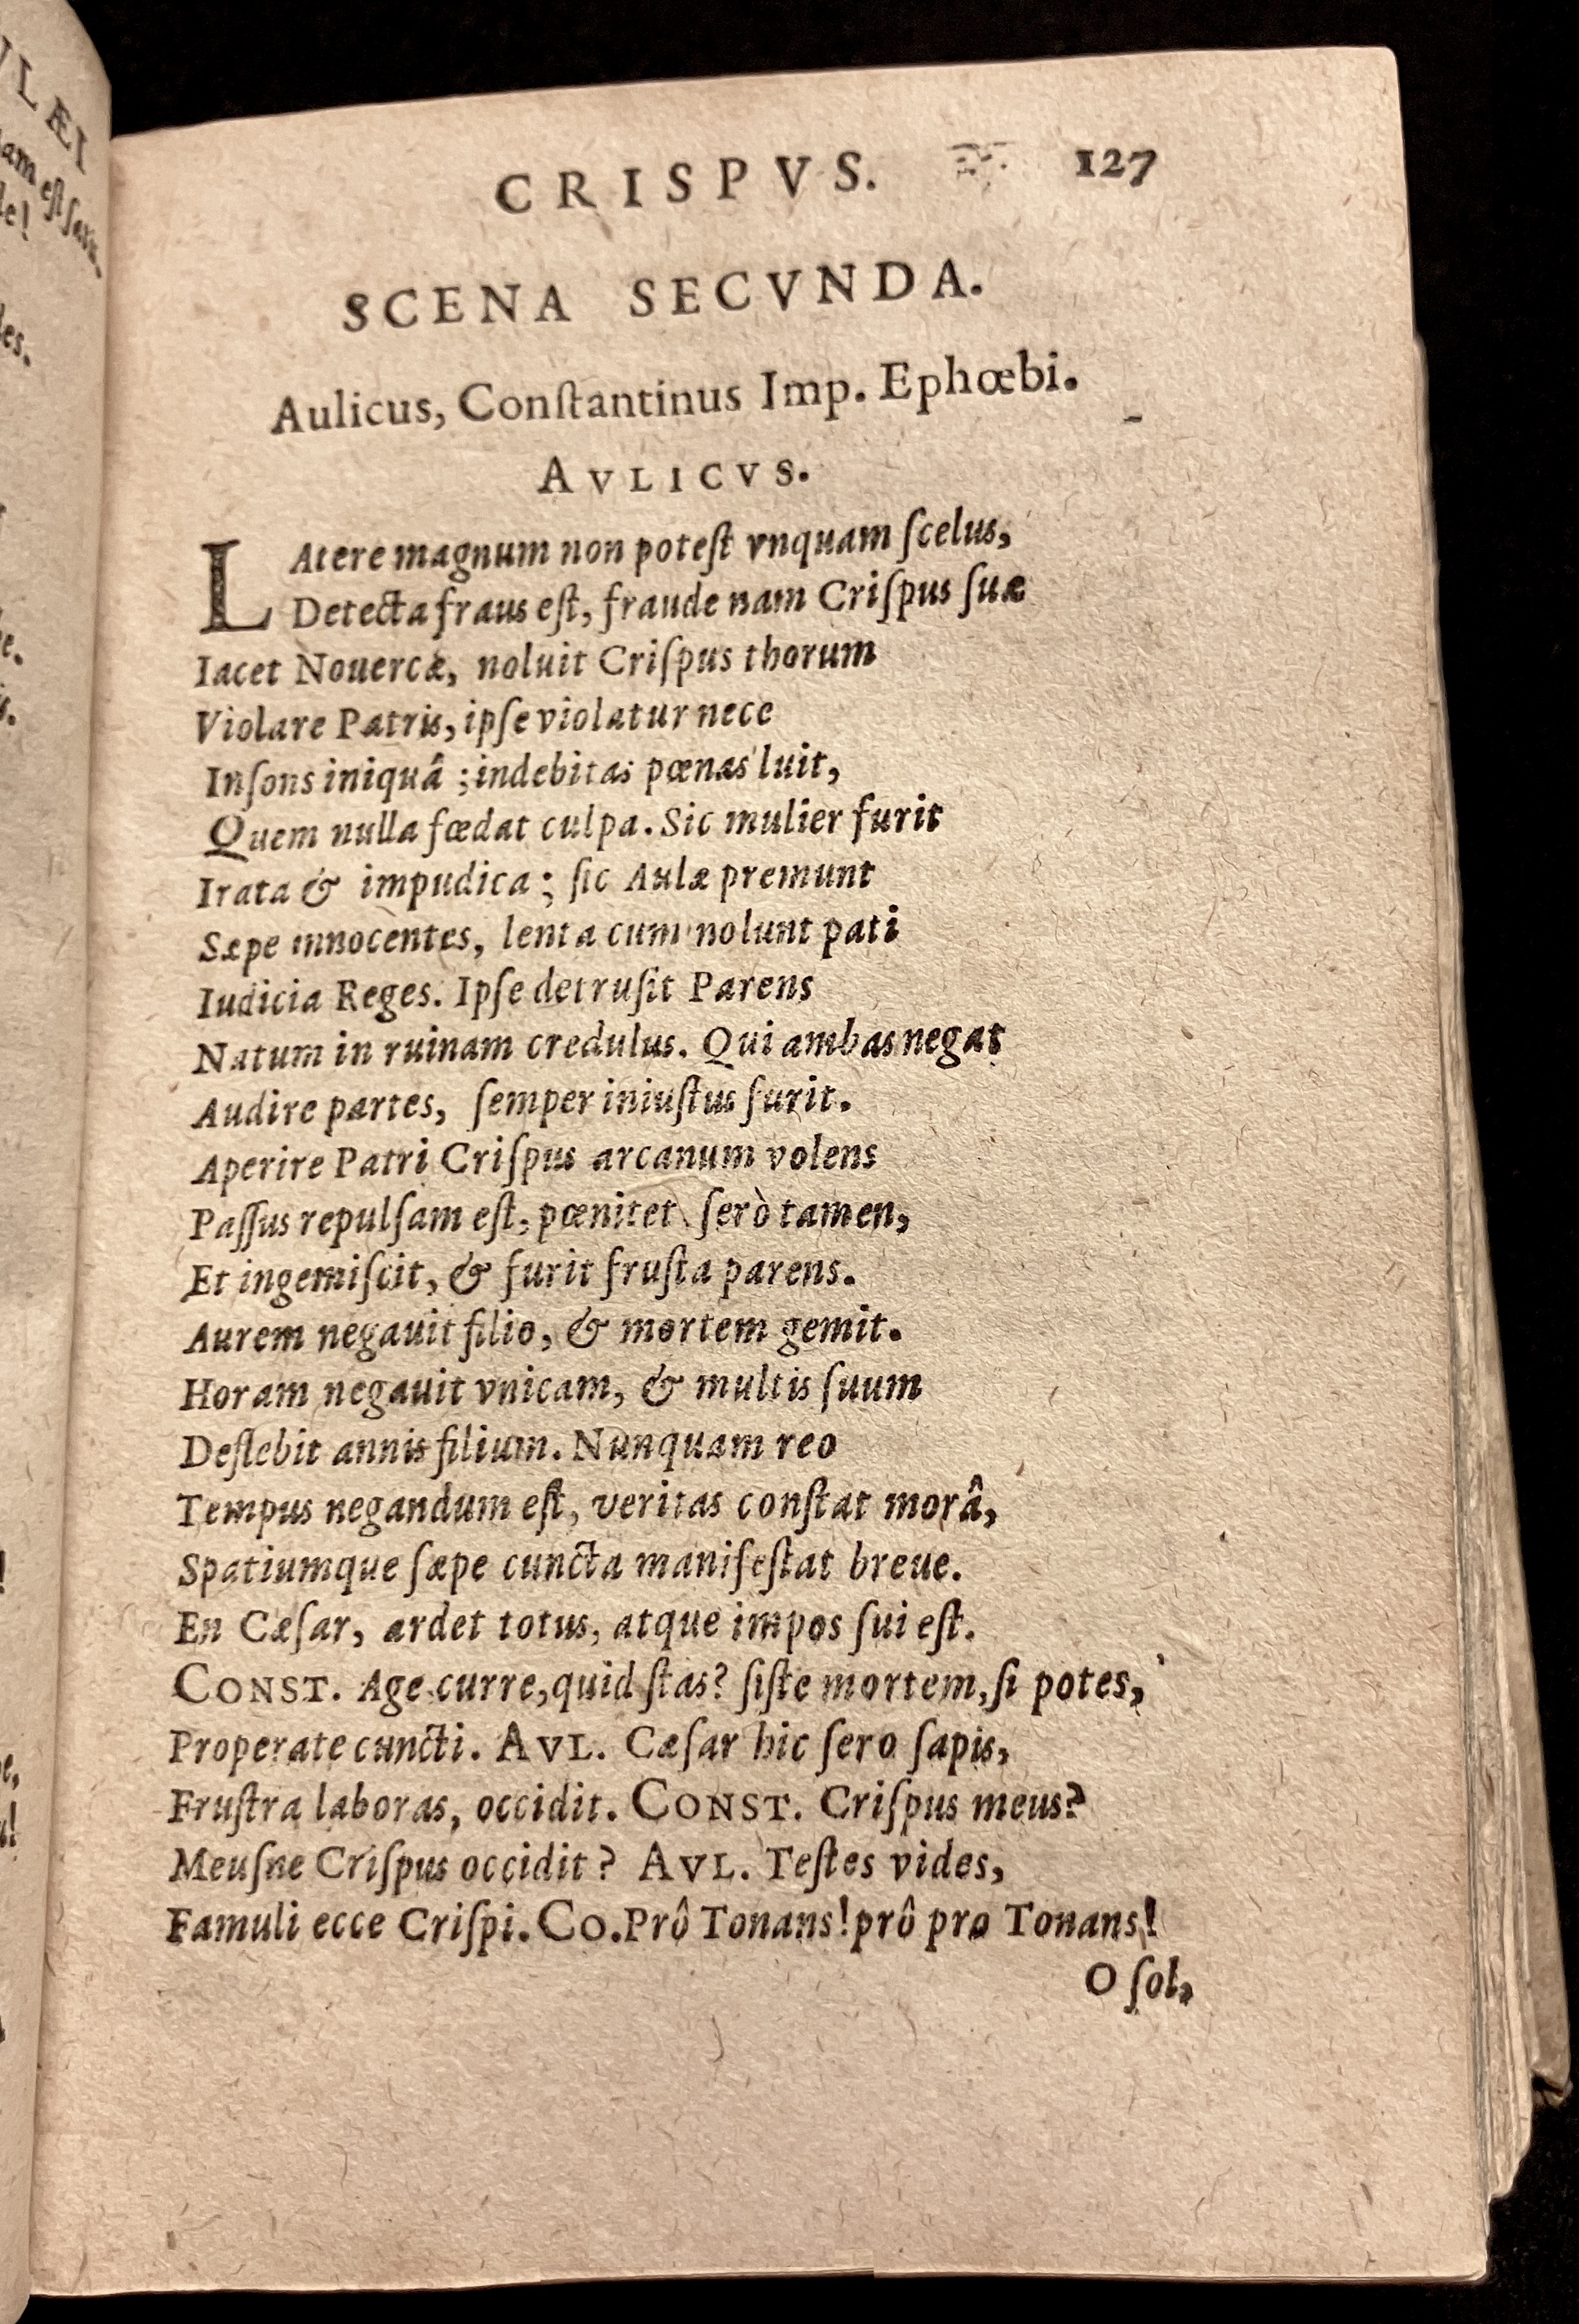 VLÆI
am est satu-
le!
les.
CRISPVS. 127
SCENA SECVNDA.
Aulicus, Conſtantinus Imp. Ephœbi.
AVLICVS.
LAtere magnum non poteſt vnquam ſcelus,
Detecta fraus eſt, fraude nam Criſpus ſuæ
Iacet Nouercæ, noluit Criſpus thorum
Violare Patris, ipſe violatur nece
Inſons iniquâ ; indebitas pœnas luit,
Quem nulla fœdat culpa. Sic mulier furit
Irata & impudica ; ſic Aulæ premunt
Sæpe innocentes, lenta cum nolunt pati
Iudicia Reges. Ipſe detruſit Parens
Natum in ruinam credulus. Qui ambas negat
Audire partes, ſemper iniuſtus furit.
Aperire Patri Criſpus arcanum volens
Paſſus repulſam eſt, pœnitet ſerò tamen,
Et ingemiſcit, & furit fruſta parens.
Aurem negauit filio, & mortem gemit.
Horam negauit vnicam, & multis ſuum
Deflebit annis filium. Nunquam reo
Tempus negandum eſt, veritas conſtat morâ,
Spatiumque ſæpe cuncta manifeſtat breue.
En Cæſar, ardet totus, atque impos ſui eſt.
CONST. Age curre, quid ſtas? ſiſte mortem, ſi potes,
Properate cuncti. AVL. Cæſar hic ſero ſapis,
Fruſtra laboras, occidit. CONST. Criſpus meus?
Meuſne Criſpus occidit? AVL. Teſtes vides,
Famuli ecce Criſpi. CO. Prô Tonans! prô pro Tonans!
O ſol,